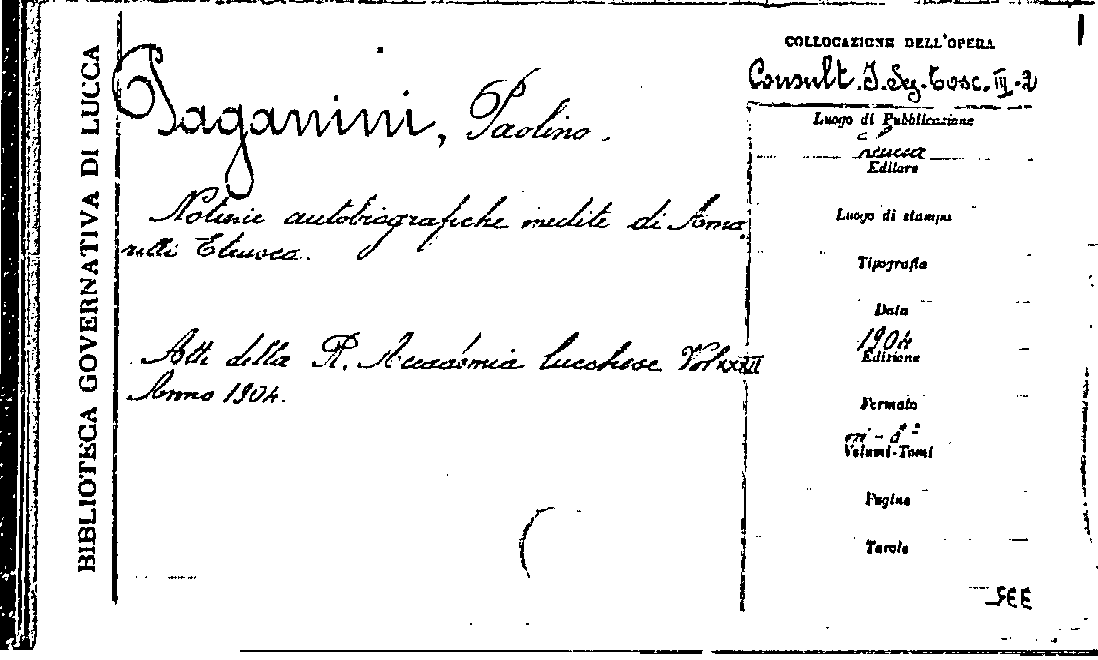 BIBLIOTECA GOVERNATIVA DI LUCCA
Paganini, Paolino.
Notizie autobiografiche inedite di Ama
rilli Etrusca.
Atti della R. Accademia lucchese Vol XXXII
Anno 1904.
COLLOCAZIONE DELL'OPERA
Consult. I. Sez. Tosc. III-2
Luogo di Pubblicazione
Lucca
Editore
Luogo di stampa
Tipografia
Data
1904
Edizione
Formato
in-8°
Volumi-Tomi
Pagine
Tavole